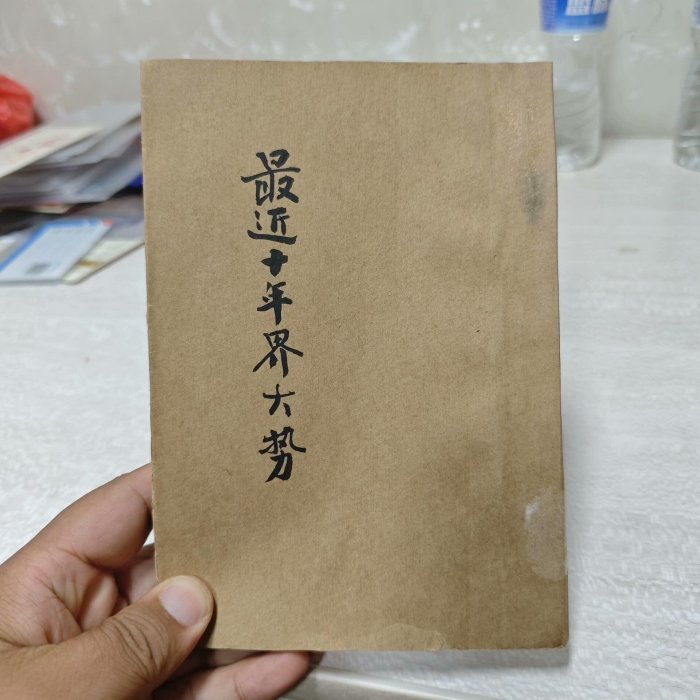 最近十年界大势